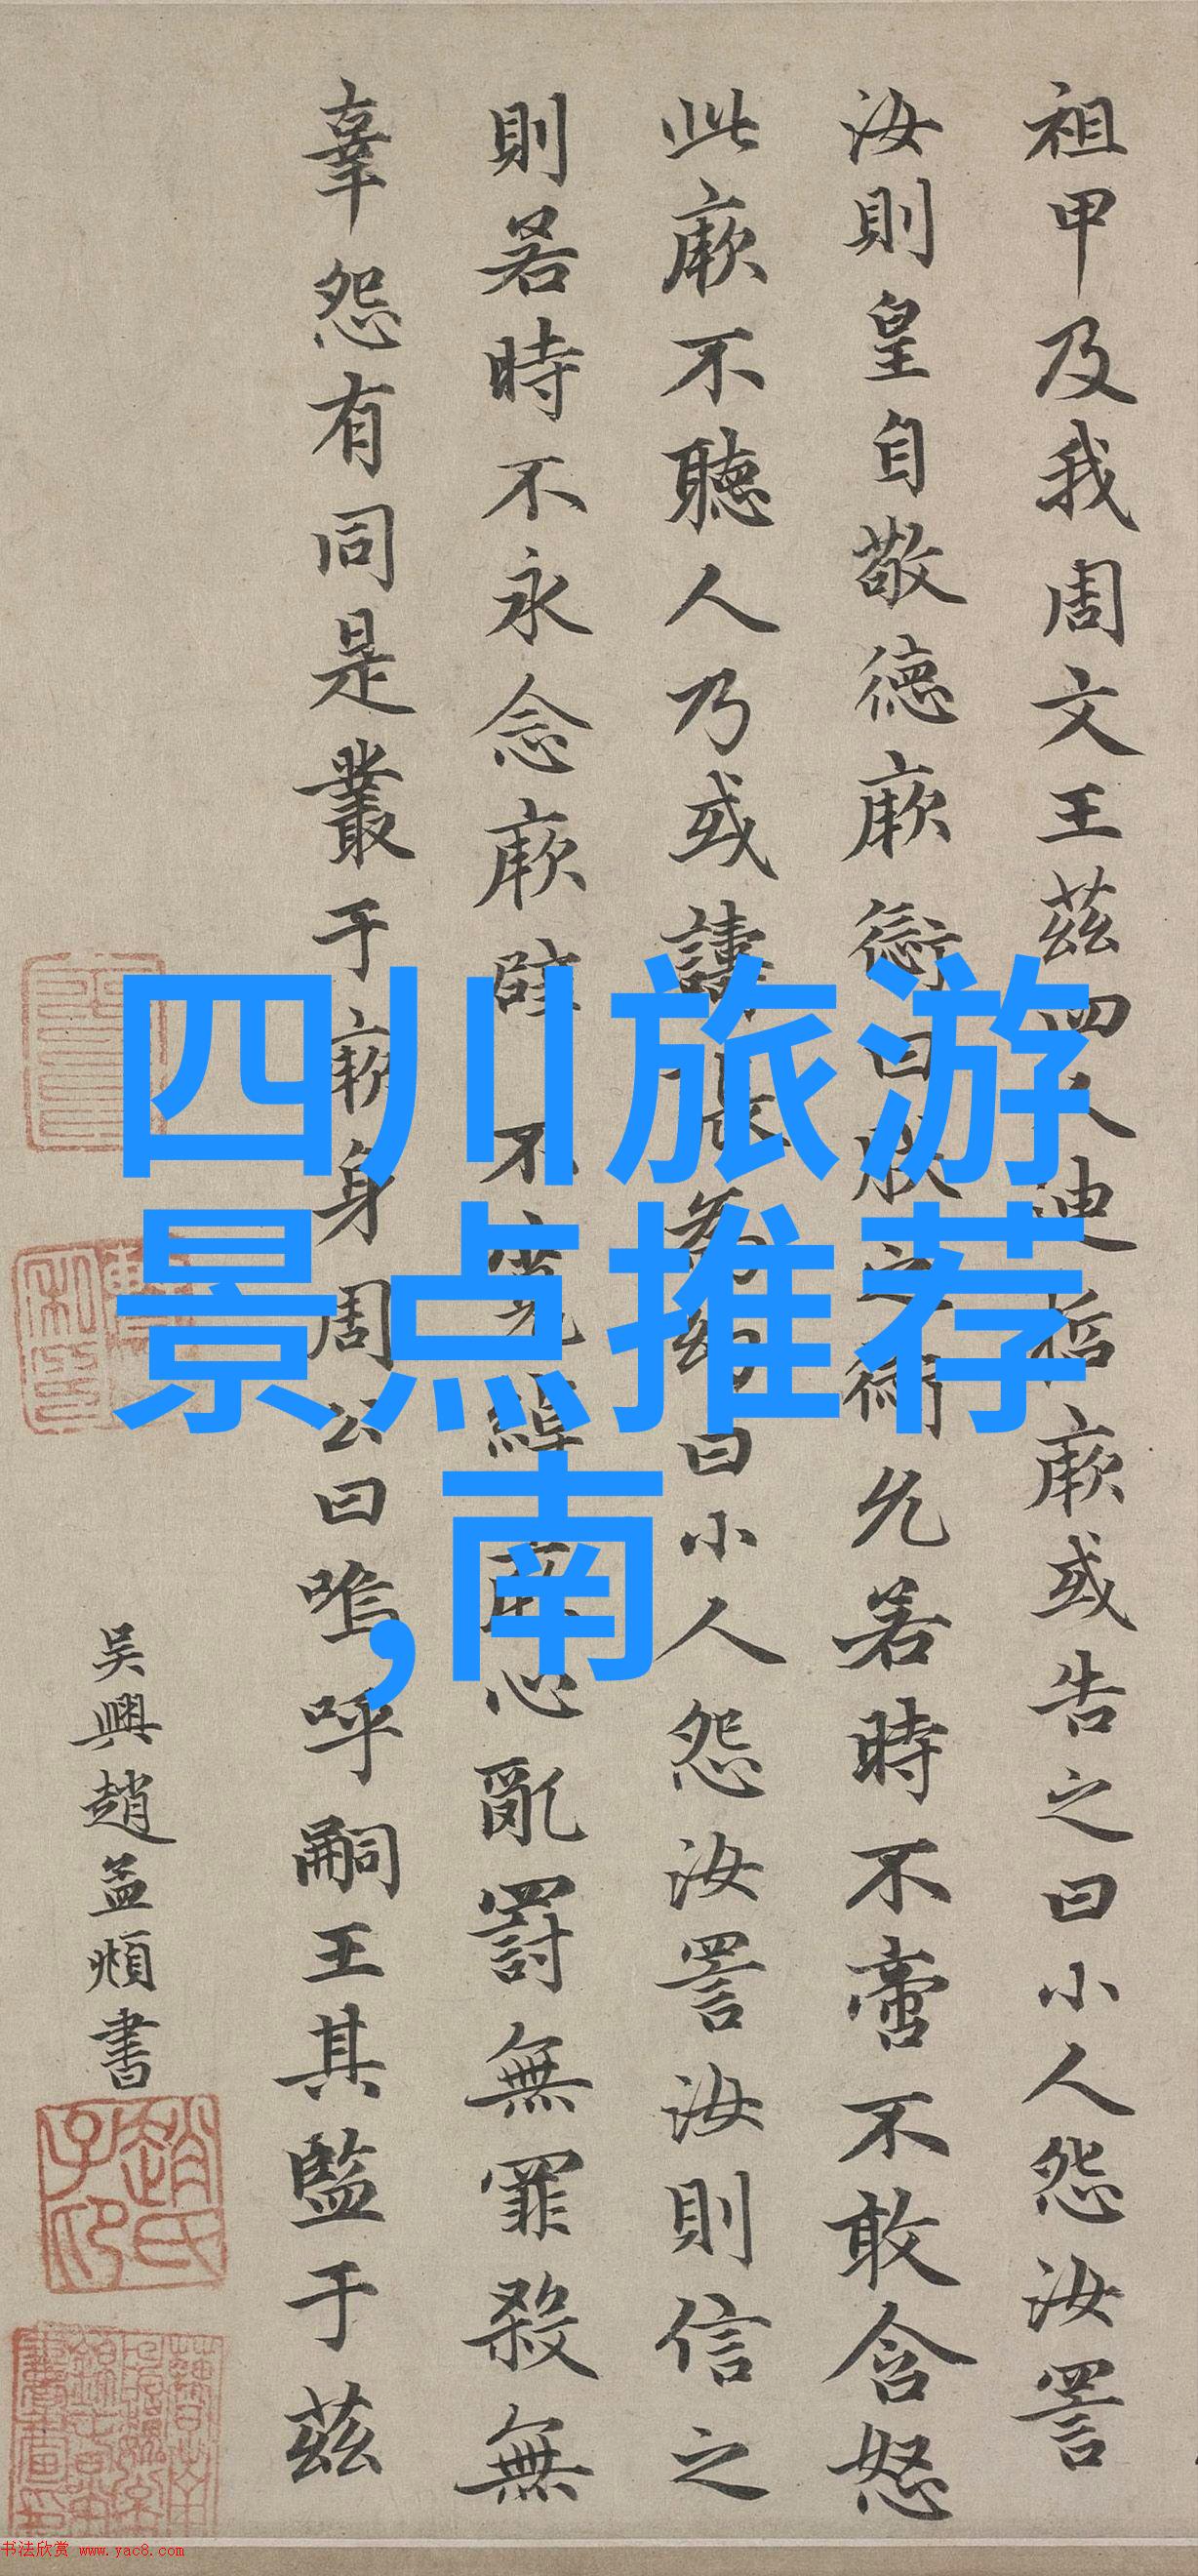 祖甲及我周文王茲四人迪哲厥或告之曰小人怨汝詈
汝則皇自敬德厥愆曰朕之愆允若時不啻不敢含怒
此厥不聽人乃或譸張為幻曰小人怨汝詈汝則信之
則若時不永念厥辟不寬綽厥心亂罰無罪殺無
辜怨有同是叢于厥身周公曰嗚呼嗣王其監于茲
吴興趙孟頫書
趙氏子昂
四川旅游
景点推荐
,南
书法欣赏 www.yac8.com